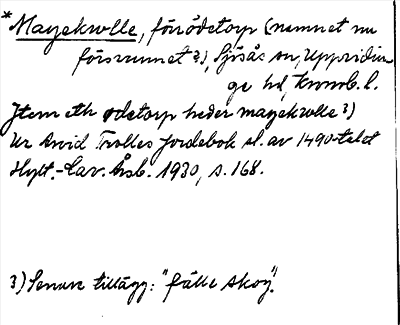 *Mayekwlle, förödetorp (namnet nu
försvunnet?), Sjösås sn, Uppvidin-
ge hd, Kronob. l.
Jtem eth ødetorp heder mayekwlle 3)
Ur Arvid Trolles jordebok sl. av 1490-talet
Hylt.-Cav. Årsb. 1930, s. 168.
3) Senare tillägg: "fälle skog".